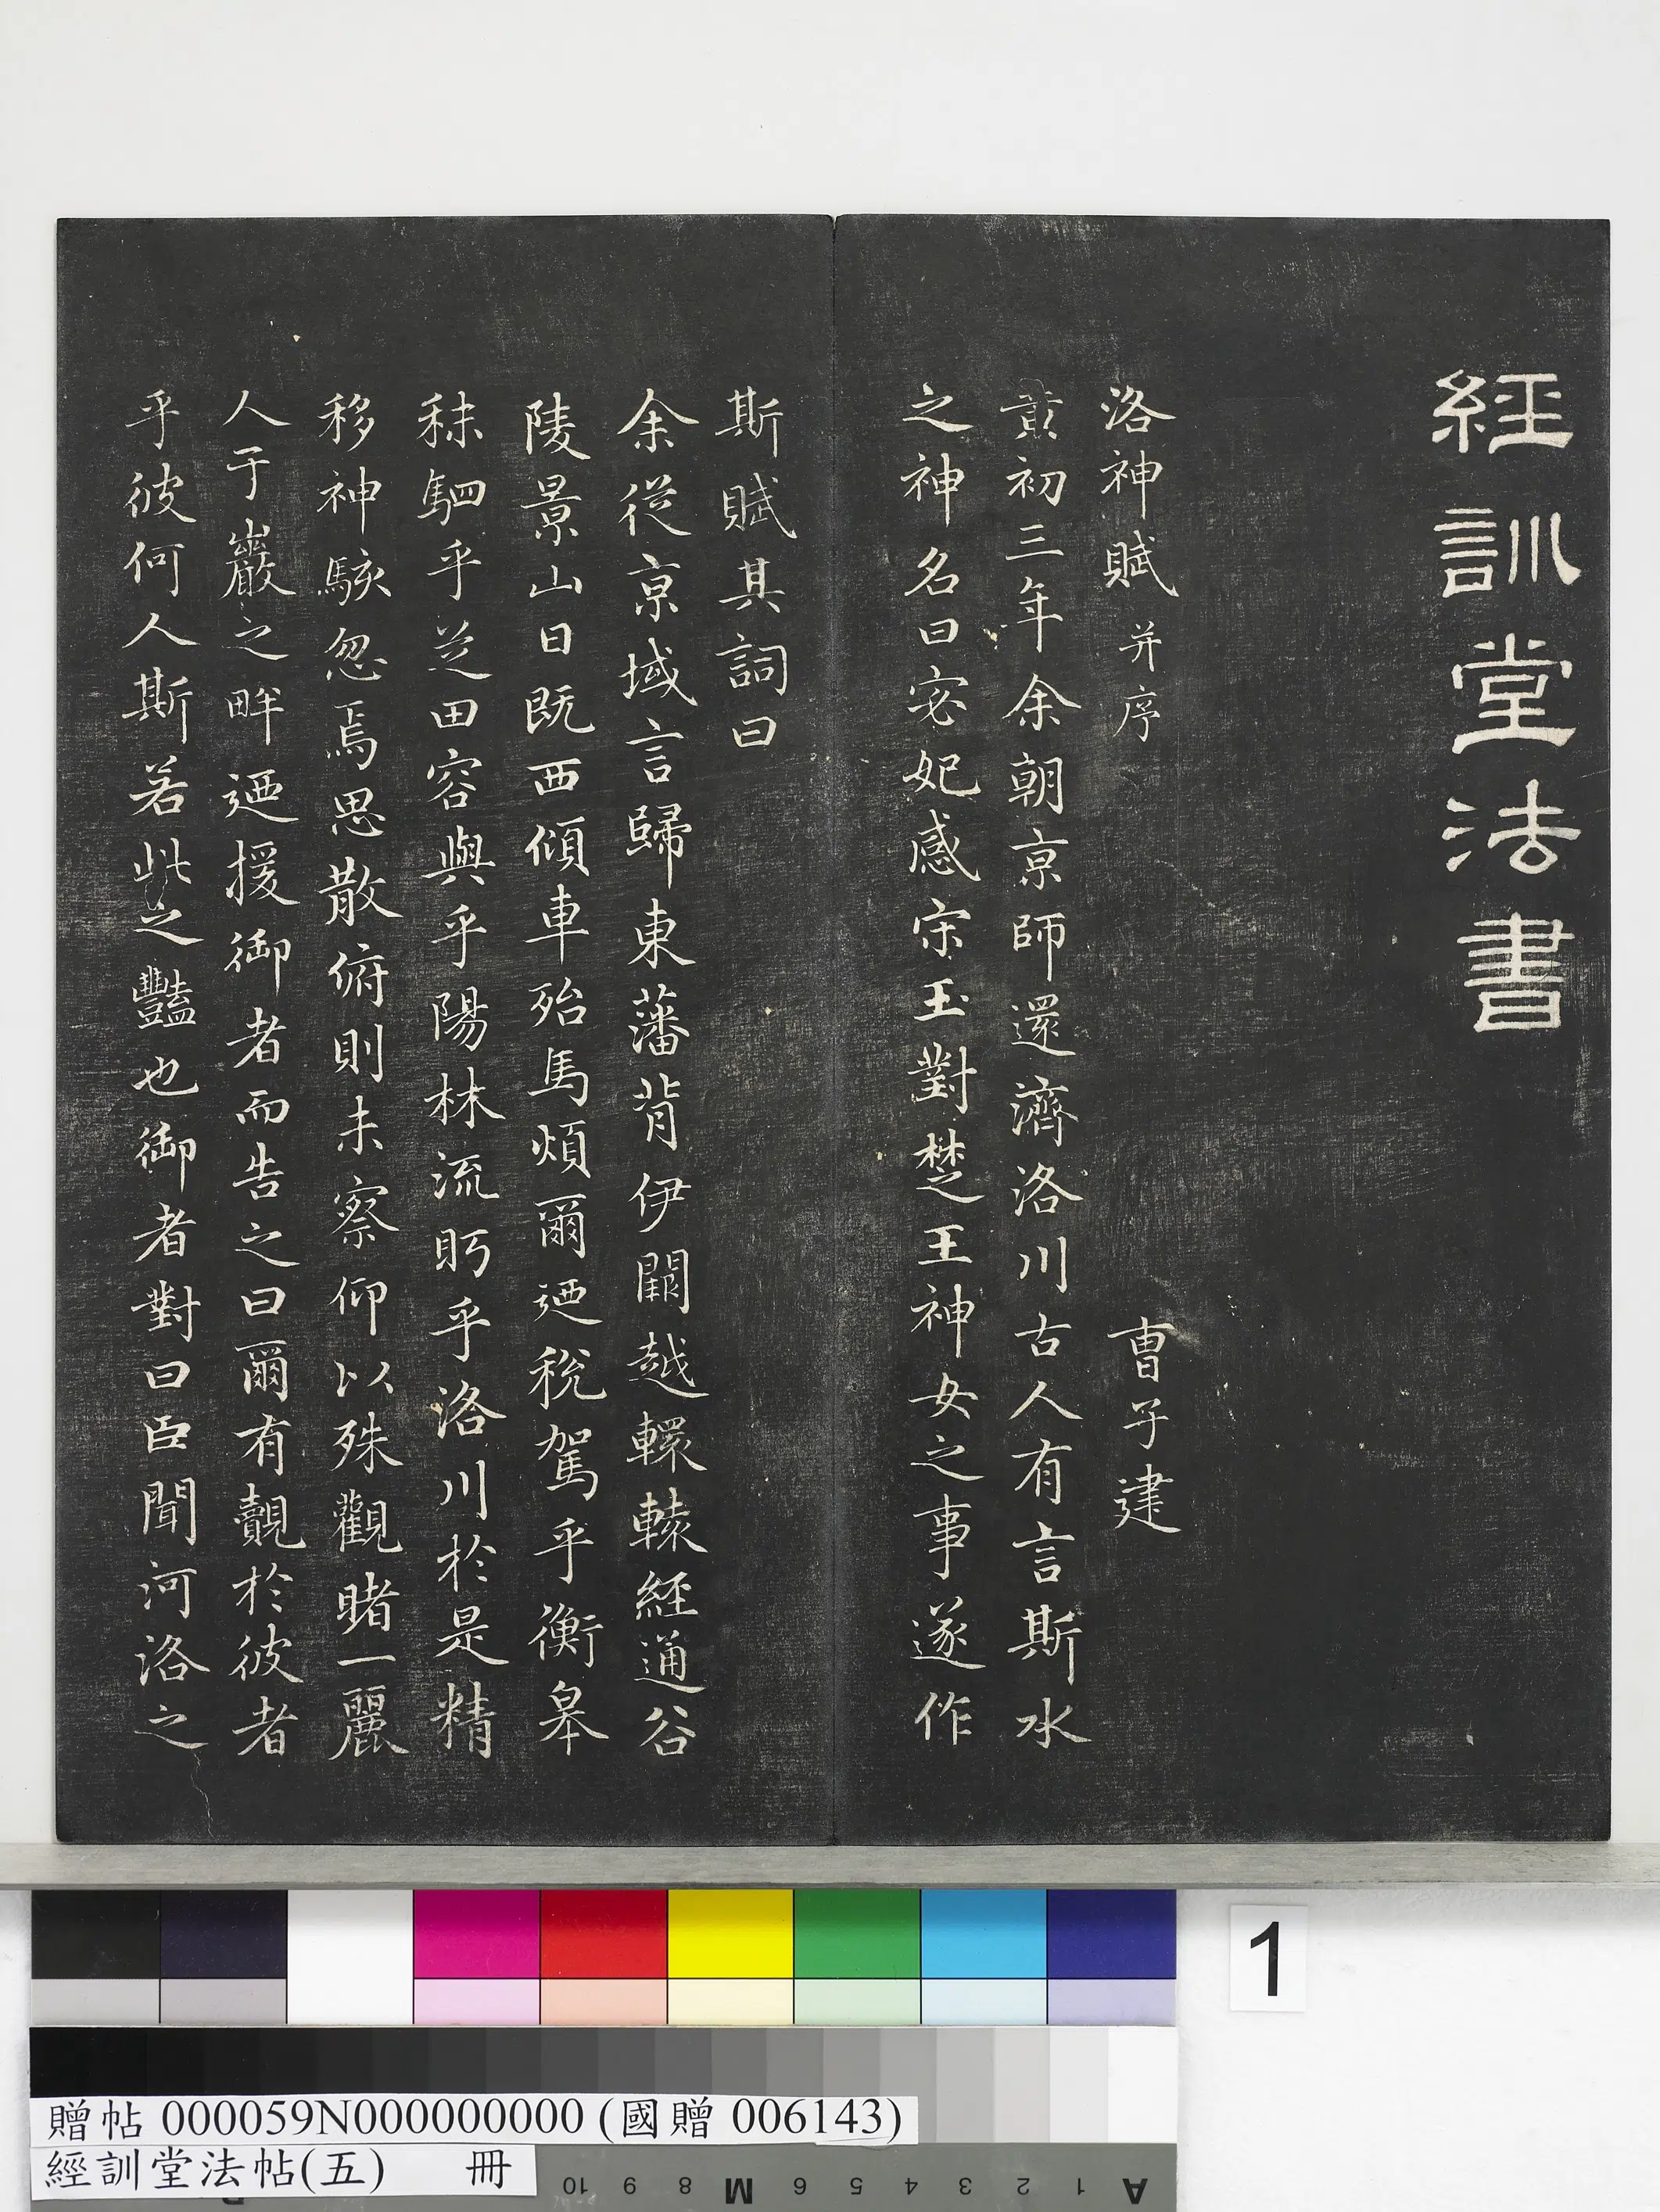 經訓堂法書
洛神賦 并序 曹子建
黃初三年余朝京師還濟洛川古人有言斯水
之神名曰宓妃感宋玉對楚王神女之事遂作
斯賦其詞曰
余從京域言歸東藩背伊闕越轘轅經通谷
陵景山日既西傾車殆馬煩爾迺稅駕乎衡皋
秣駟乎芝田容與乎陽林流眄乎洛川於是精
移神駭忽焉思散俯則未察仰以殊觀睹一麗
人于巖之畔迺援御者而告之曰爾有覿於彼者
乎彼何人斯若此之豔也御者對曰臣聞河洛之
1
贈帖 000059N000000000 (國贈 006143)
經訓堂法帖(五) 冊
10 9 8 M 6 5 4 3 2 1 A